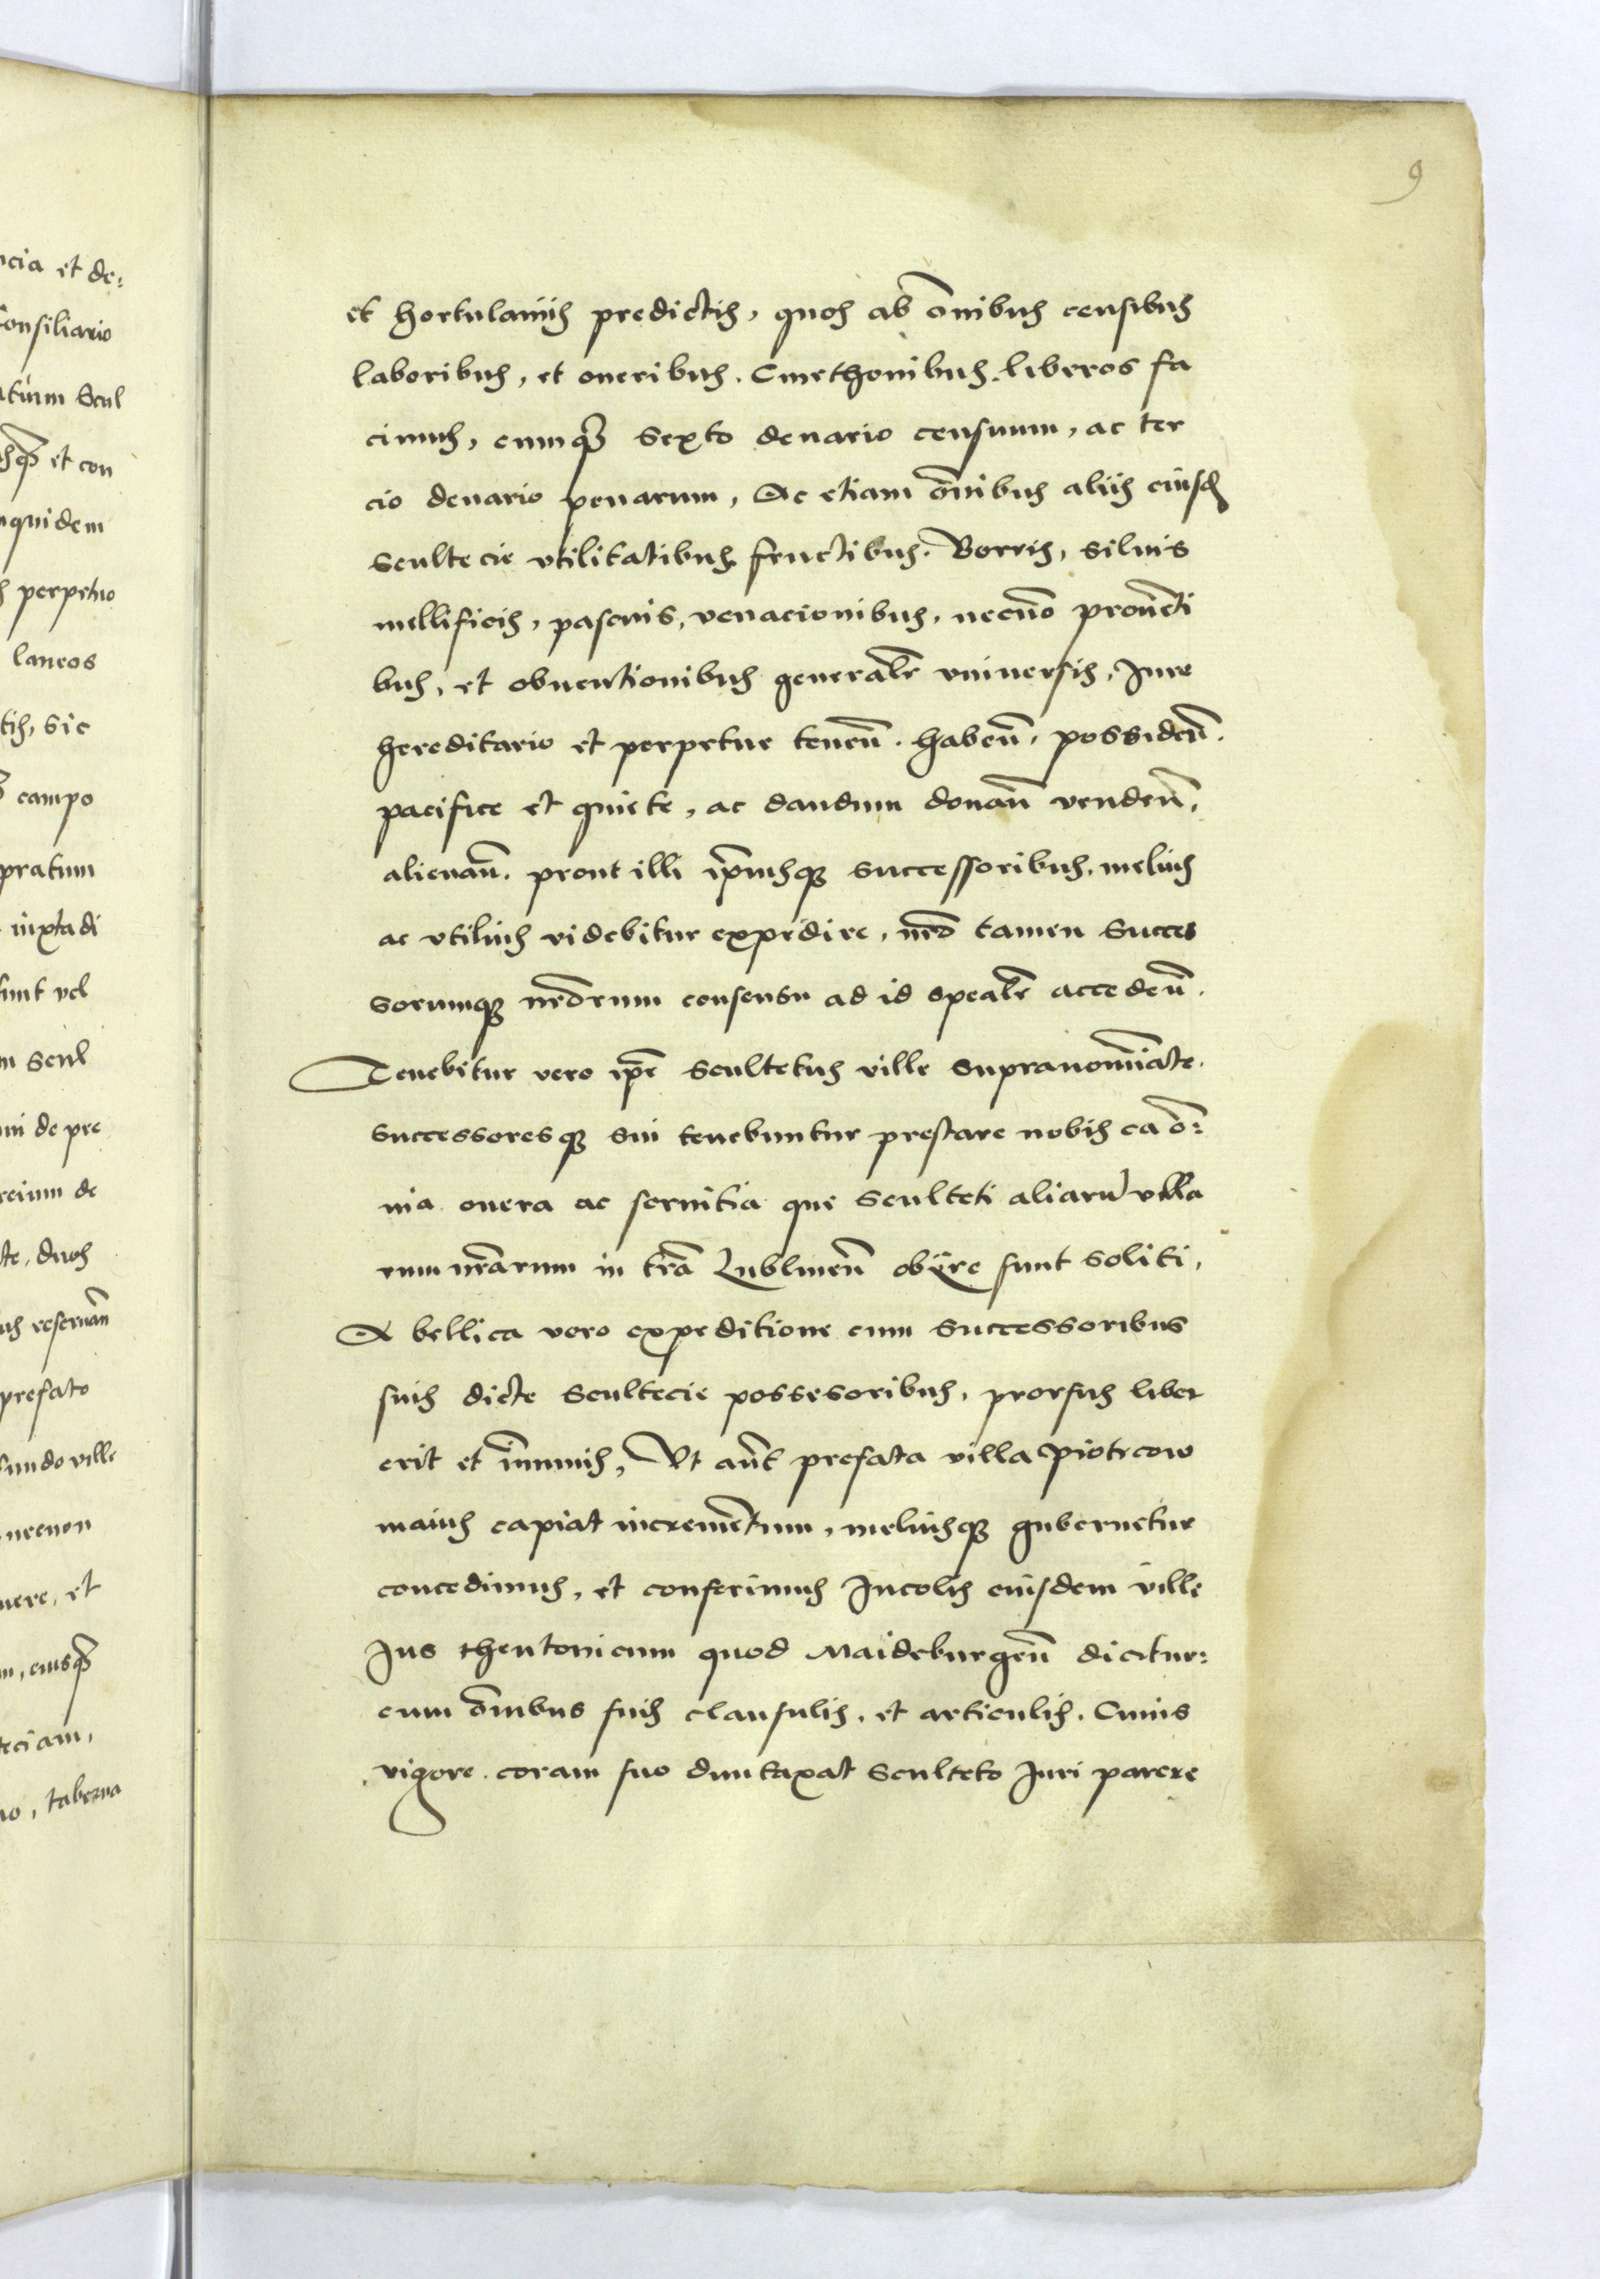 9
ncia et de:
Consiliario
Scul
et con
nquidem
perpetuo
laneos
sic
campo
pratum
iuxta di
sunt vel
m Scul
ni de pre
rcium de
cte, duos
reseruan̄
prefato
fundo ville
necnon
uere, et
teciam,
no, taberna
et hortulaniis predictis, quos ab om̄ibus censibus
laboribus, et oneribus. Cmethonibus liberos fa
cimus, cumq̄ sexto denario censuum, ac ter
cio denario penarum, Ac etiam om̄ibus aliis eiusd
Scultecie vtilitatibus fructibus. Borris, siluis
mellificiis, pascuis, venacionibus, necno prouēti
bus, et obuentionibus generalr vniuersis, Jure
hereditario et perpetue tenen̄. haben̄. possiden̄.
pacifice et quiete, ac dandum donan̄ venden̄,
alienan̄. prout illi ip̄iusq successoribus, melius
ac vtilius videbitur expedire, nr̄o tamen Succes
sorumq nr̄orum consensu ad id spealr acceden̄.
Tenebitur vero ip̄e Scultetus ville supranomīate.
Successoresq sui tenebuntur prestare nobis ea o:
nia onera ac seruitia que Sculteti aliarū villa
rum nr̄arum in tr̄a Lublinen̄ obijre sunt soliti,
A bellica vero expeditione cum successoribus
suis dicte Scultecie possesoribus, prorsus liber
erit et im̄unis, Vt aūt prefata villa Piotrcow
maius capiat incremētum, meliusq gubernetur
concedimus, et conferimus Incolis eiusdem ville
Jus thentonicum quod Maideburgen̄ dicitur:
cum om̄ibus suis clausulis, et articulis. Cuius
vigore coram suo duntaxat Sculteto Juri parere